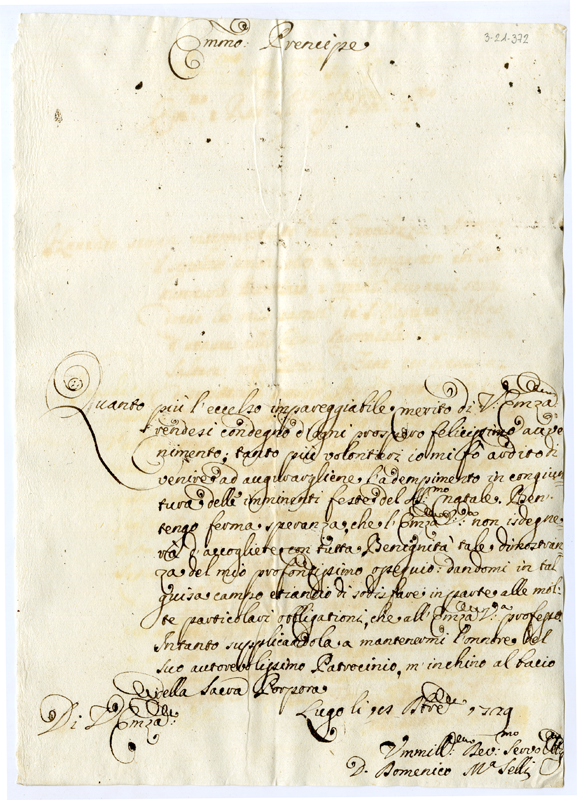 3-21-372
Emmo: Prencipe
Quanto più l'eccelso impareggiabile merito di V: Emza
rendesi condegno d'ogni prospero felicissimo avve
nimento; tanto più volontieri io mi fò ardito di
venire ad augurargliene l'adempimento in congiun
tura delle imminenti feste del SSmo natale. Ben
tengo ferma speranza, che l'Emza Va: non isdegne
rà d'accogliere con tutta Benignità tale dimostran
za del mio profondissimo ossequio: dandomi in tal
guisa campo etiandio di sodisfare in parte alle mol
te particolari obligationi, che all'Emza Va: professo.
Intanto supplicandola a mantenermi l'onnore del
suo autorevolissimo Patrocinio, m'inchino al bacio
della Sacra Porpora
Di V: Emza:
Lugo li Xbre 1729
Vmmill: Dev: Servo
D. Domenico Ma Selli